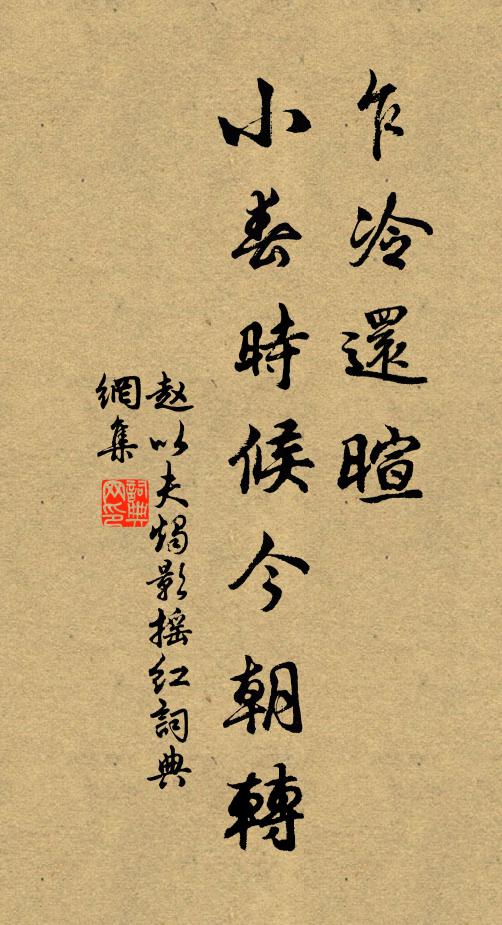 乍冷還暄
小春時候今朝轉
赵以夫燭影摇红詞典
網集
詞典
网印